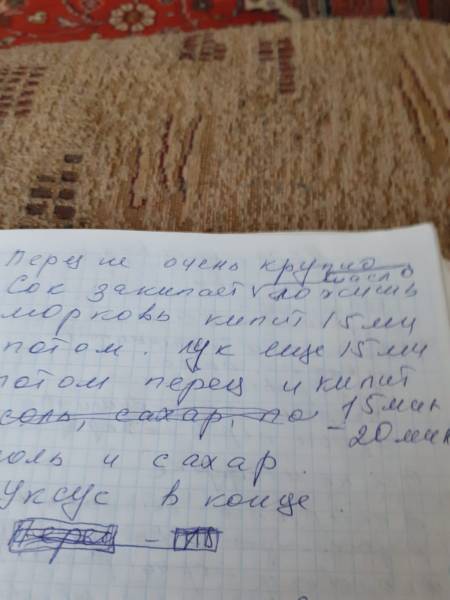 Перец не очень крупно
масло
Сок закипает ложишь
морковь кипит 15 ми
потом. лук еще 15 ми
потом перец и кипит
соль, сахар, по 15 мин
- 20 мин
соль и сахар.
Уксус в конце